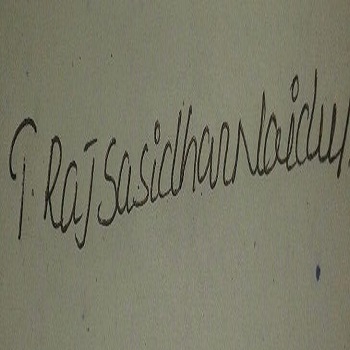 T. Raj Sasidhar Naidu.